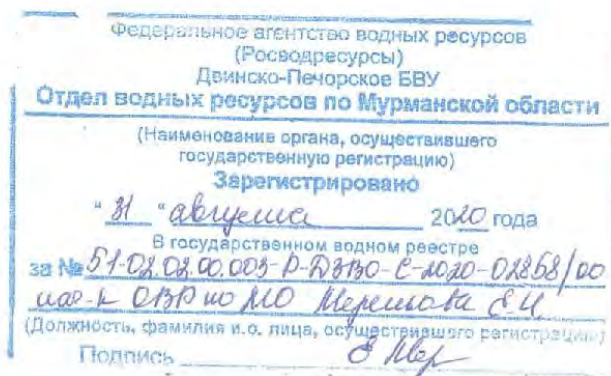 Федеральное агентство водных ресурсов
(Росводресурсы)
Двинско-Печорское БВУ
Отдел водных ресурсов по Мурманской области
(Наименование органа, осуществившего
государственную регистрацию)
Зарегистрировано
" 31 " августа 2020 года
В государственном водном реестре
за № 51-02.02.00.003-Р-ДЗВО-С-2020-02858/00
нач-к ОВР по МО
(Должность, фамилия и.о. лица, осуществившего регистрацию)
Подпись